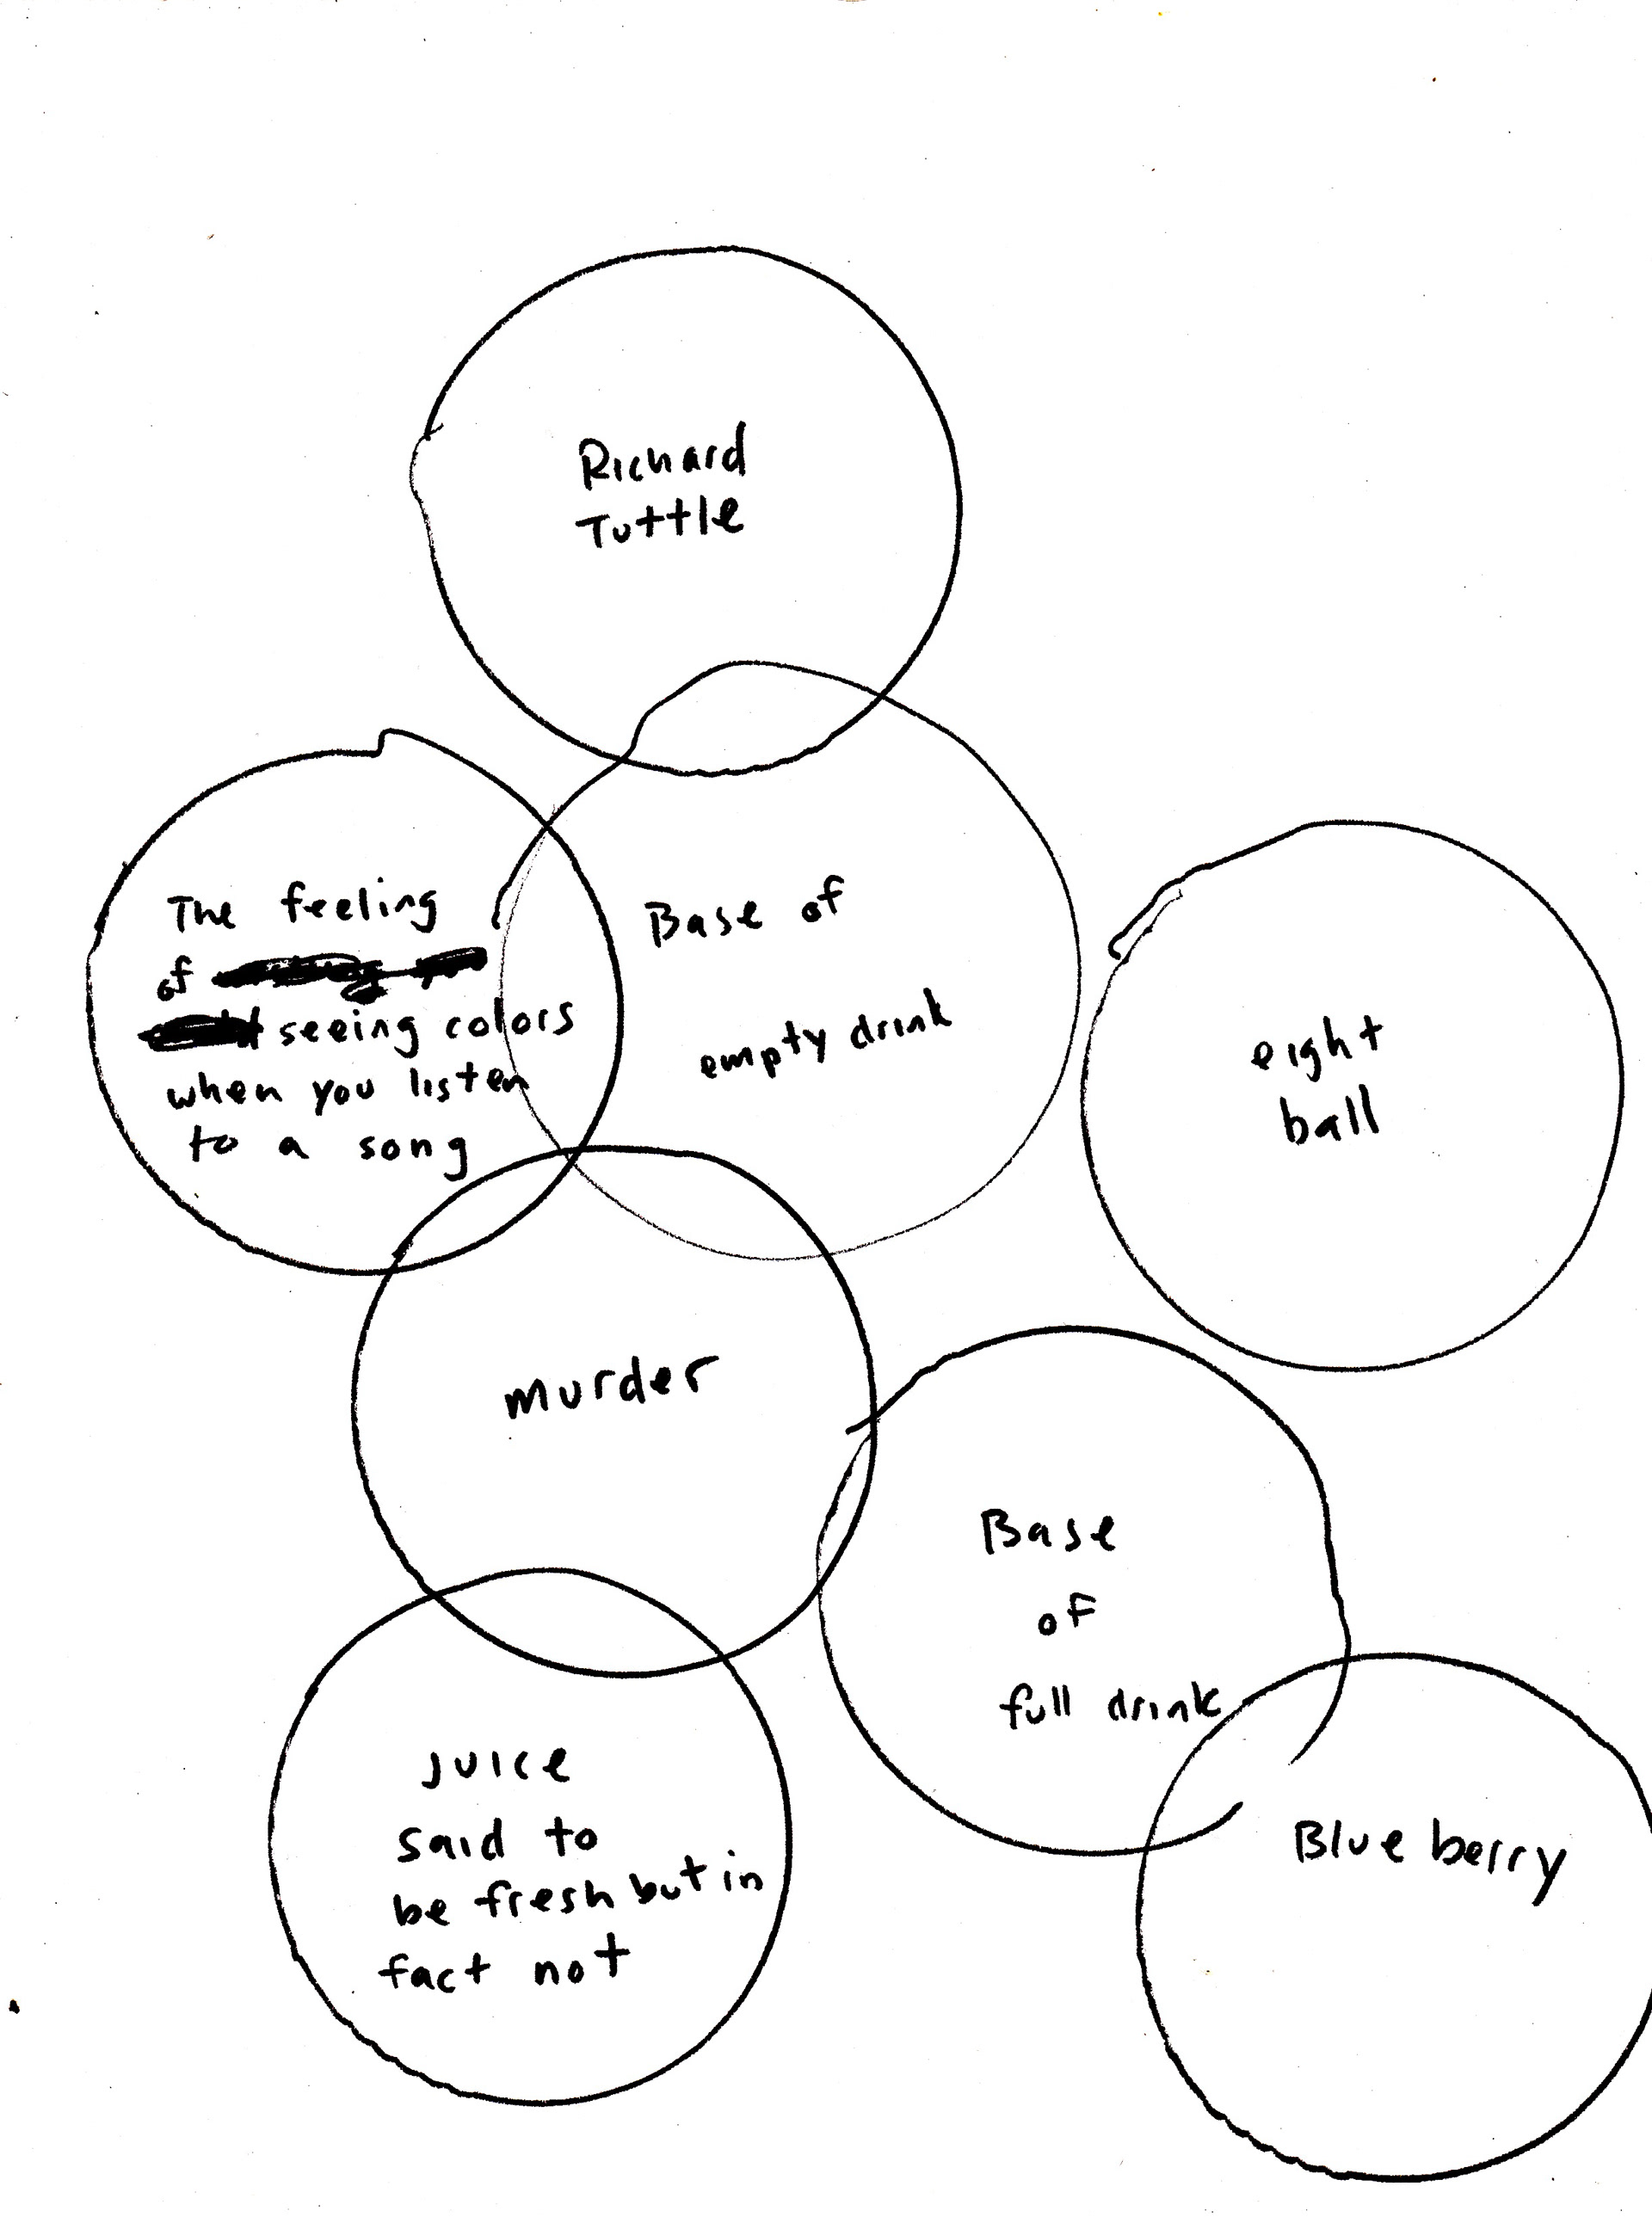 Richard
Tuttle
The feeling
of
seeing colors
when you listen
to a song
Base of
empty drink
eight
ball
murder
Base
of
full drink
Juice
said to
be fresh but in
fact not
Blue berry